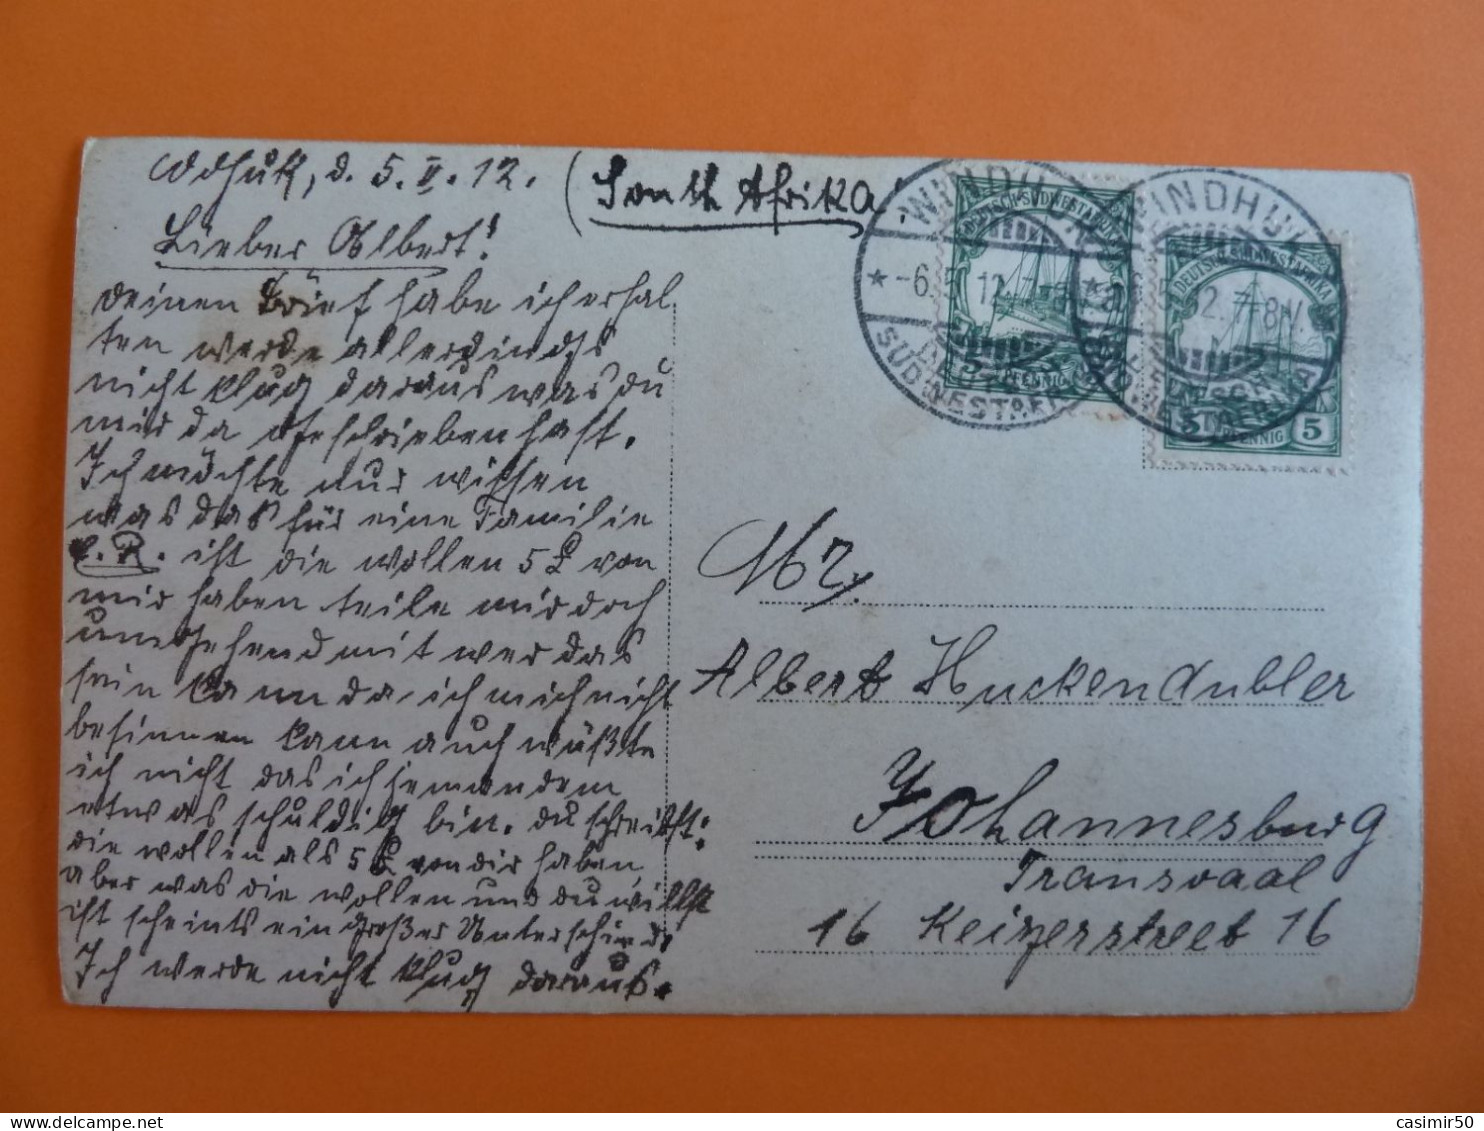 Wdhuk, d. 5.II.12. (South Afrika!
Lieber Albert!
deinen Brief habe ich erhal
ten werde allerdings
nicht klug daraus was du
mir da geschrieben hast.
Ich möchte nur wissen
was das für eine Familie
R. ist die wollen 5 £ von
mir haben teile mir doch
umgehend mit wer das
sein kann da ich mich nicht
besinnen kann auch wüßte
ich nicht das ich jemandem
etwas schuldig bin. du schreibst:
die wollen als 5 £ von dir haben,
aber was die wollen und du willst
ist scheints ein großer Unterschied.
Ich werde nicht klug daraus.
WINDHUK
* -6. 12. 7-8
DEUTSCH-SÜDWESTAFRIKA
5 PFENNIG
SÜDWESTAFRIKA
WINDHUK
12. 7-8V.
DEUTSCH-SÜDWESTAFRIKA
5 PFENNIG 5
Mr.
Albert Huckendubler
Johannesburg
Transvaal
16 Keizerstreet 16
casimir50